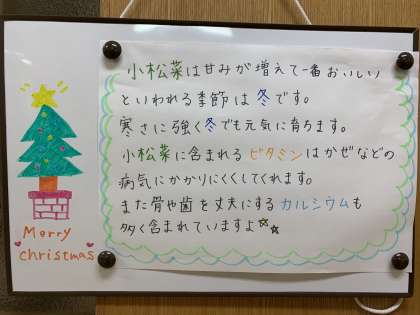 小松菜は甘みが増えて一番おいしい
といわれる季節は冬です。
寒さに強く冬でも元気に育ちます。
小松菜に含まれるビタミンはかぜなどの
病気にかかりにくくしてくれます。
また骨や歯を丈夫にするカルシウムも
多く含まれていますよ☆☆
Merry
christmas